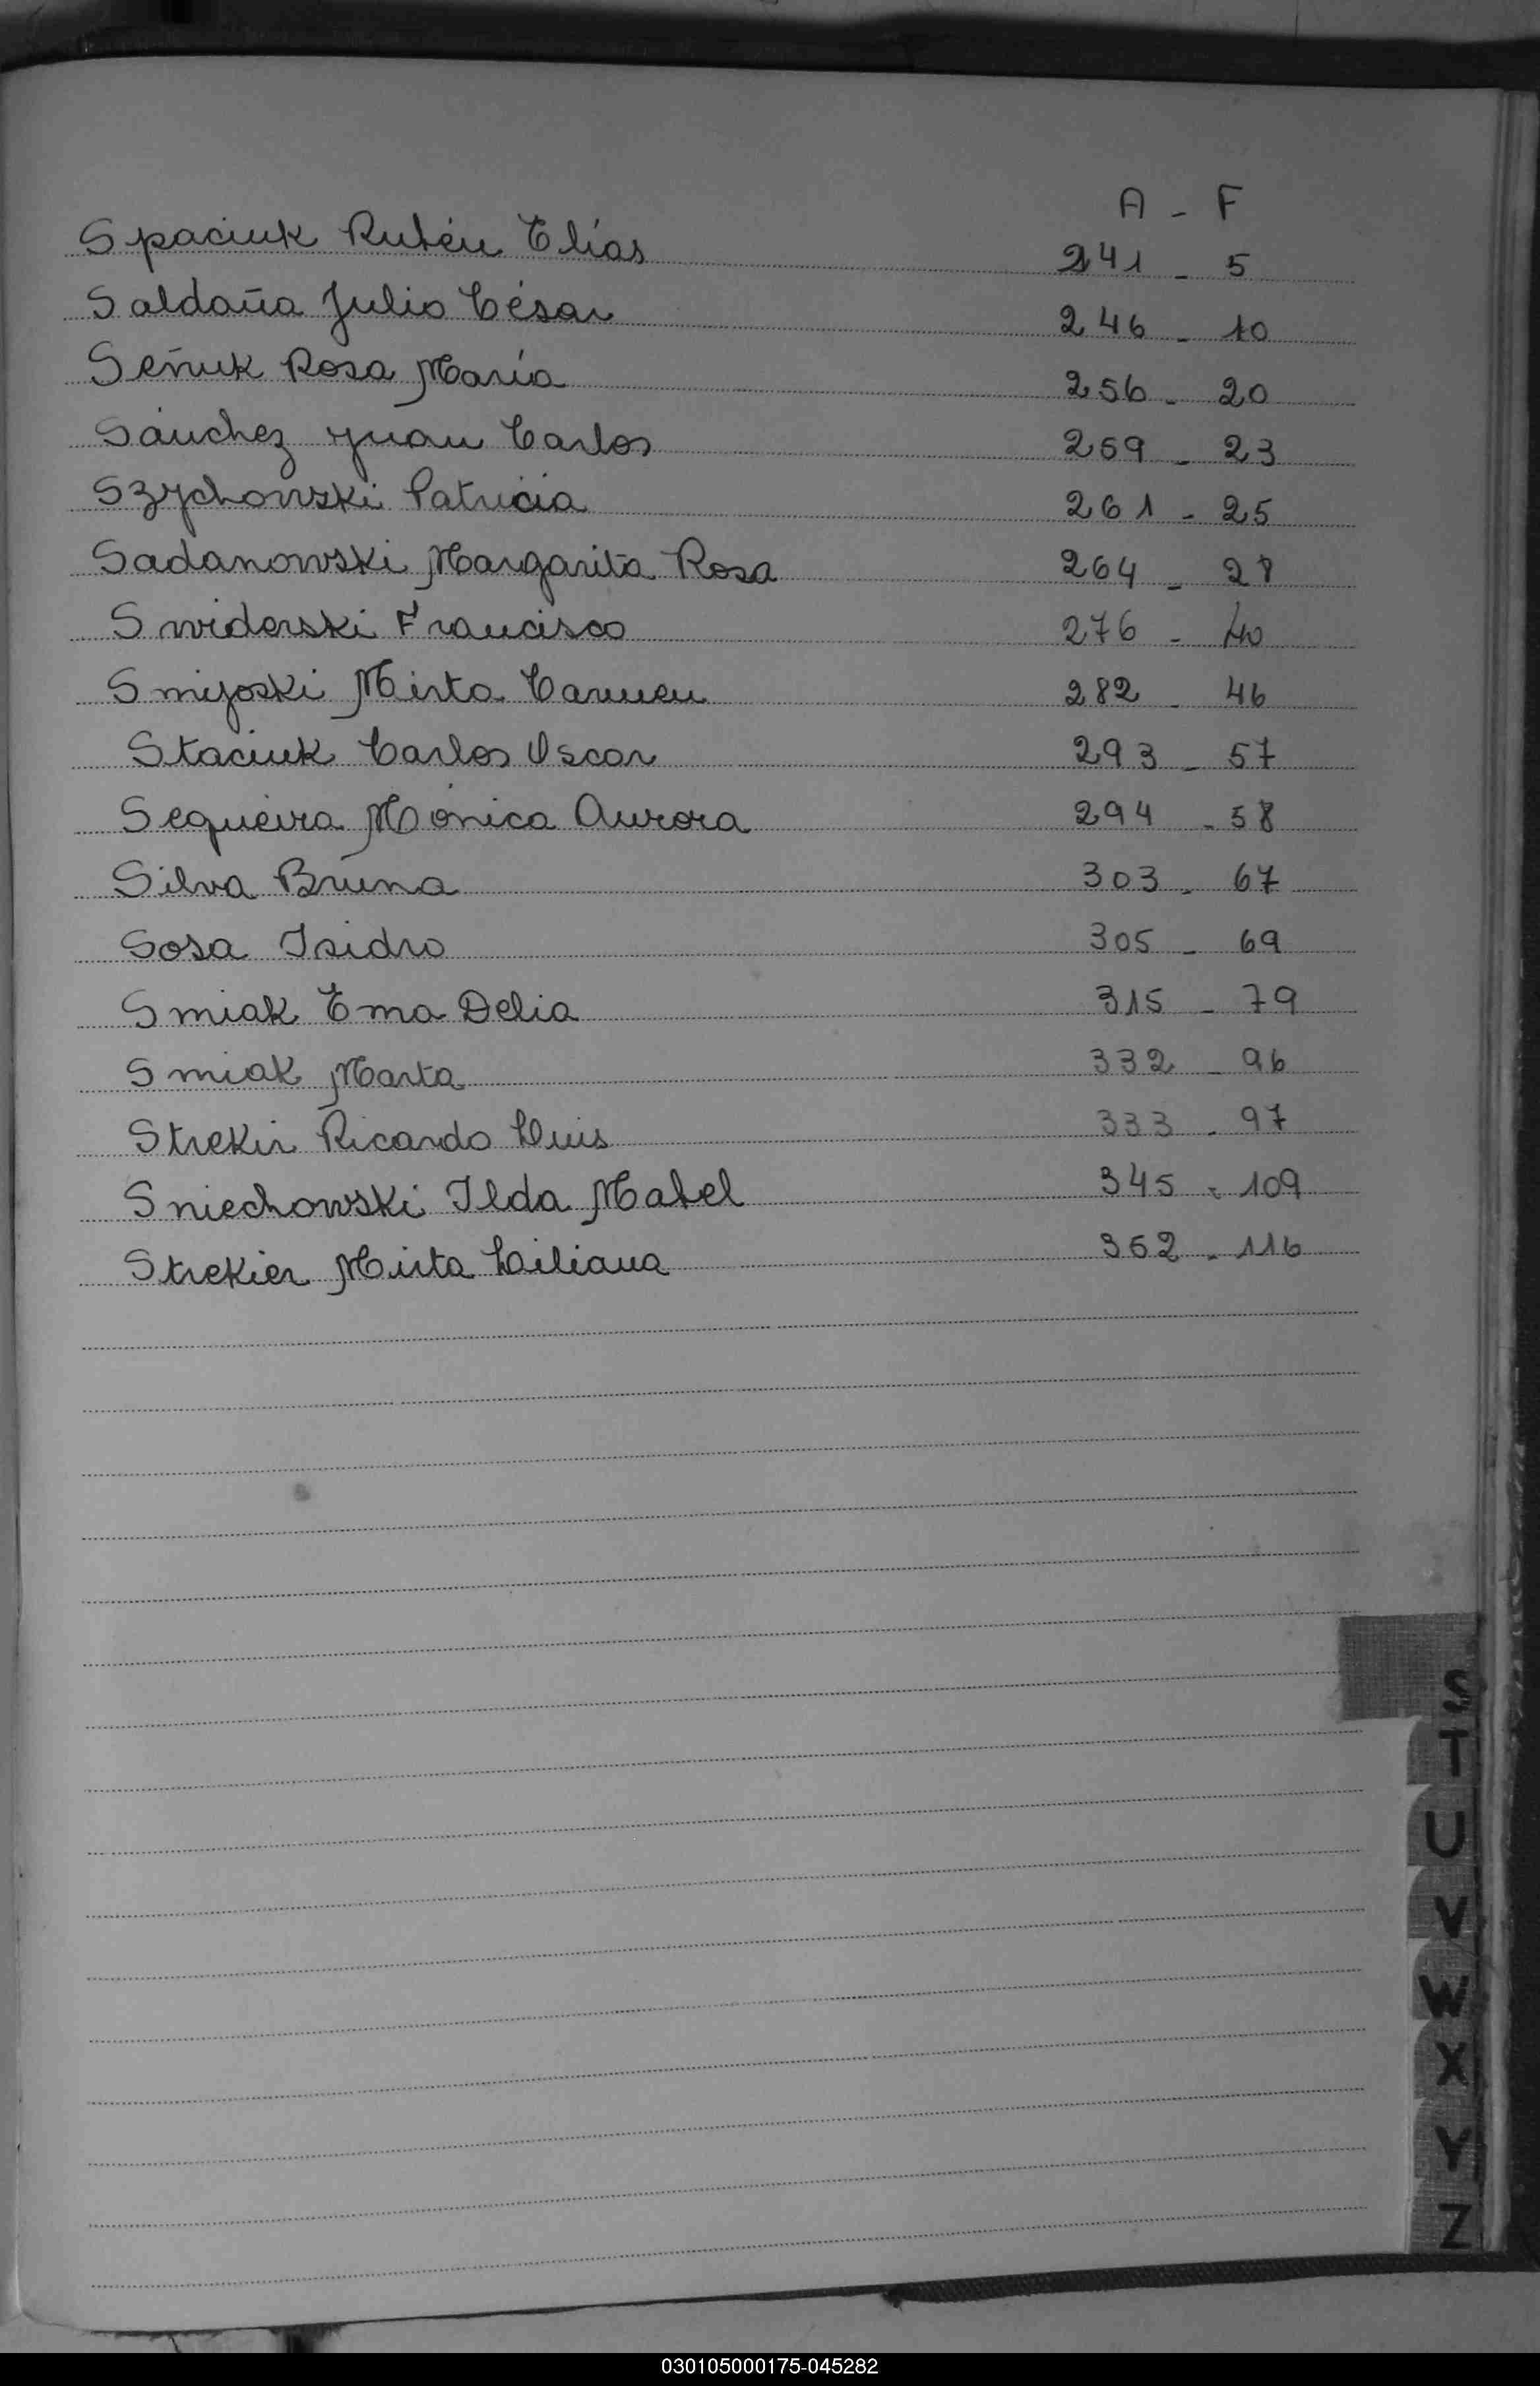 A - F
Spaciuk Rubén Elías 241 - 5
Saldaña Julio César 246 - 10
Señuk Rosa María 256 - 20
Sánchez Juan Carlos 259 - 23
Szychowski Patricia 261 - 25
Sadanowski Margarita Rosa 264 - 28
Swiderski Francisco 276 - 40
Smijoski Mirta Carmen 282 - 46
Staciuk Carlos Oscar 293 - 57
Sequeira Mónica Aurora 294 - 58
Silva Bruna 303 - 67
Sosa Isidro 305 - 69
Smiak Ema Delia 315 - 79
Smiak Marta 332 - 96
Strekir Ricardo Luis 333 - 97
Sniechowski Ilda Mabel 345 - 109
Strekier Mirta Liliana 352 - 116
S
T
U
V
W
X
Y
Z
030105000175-045282